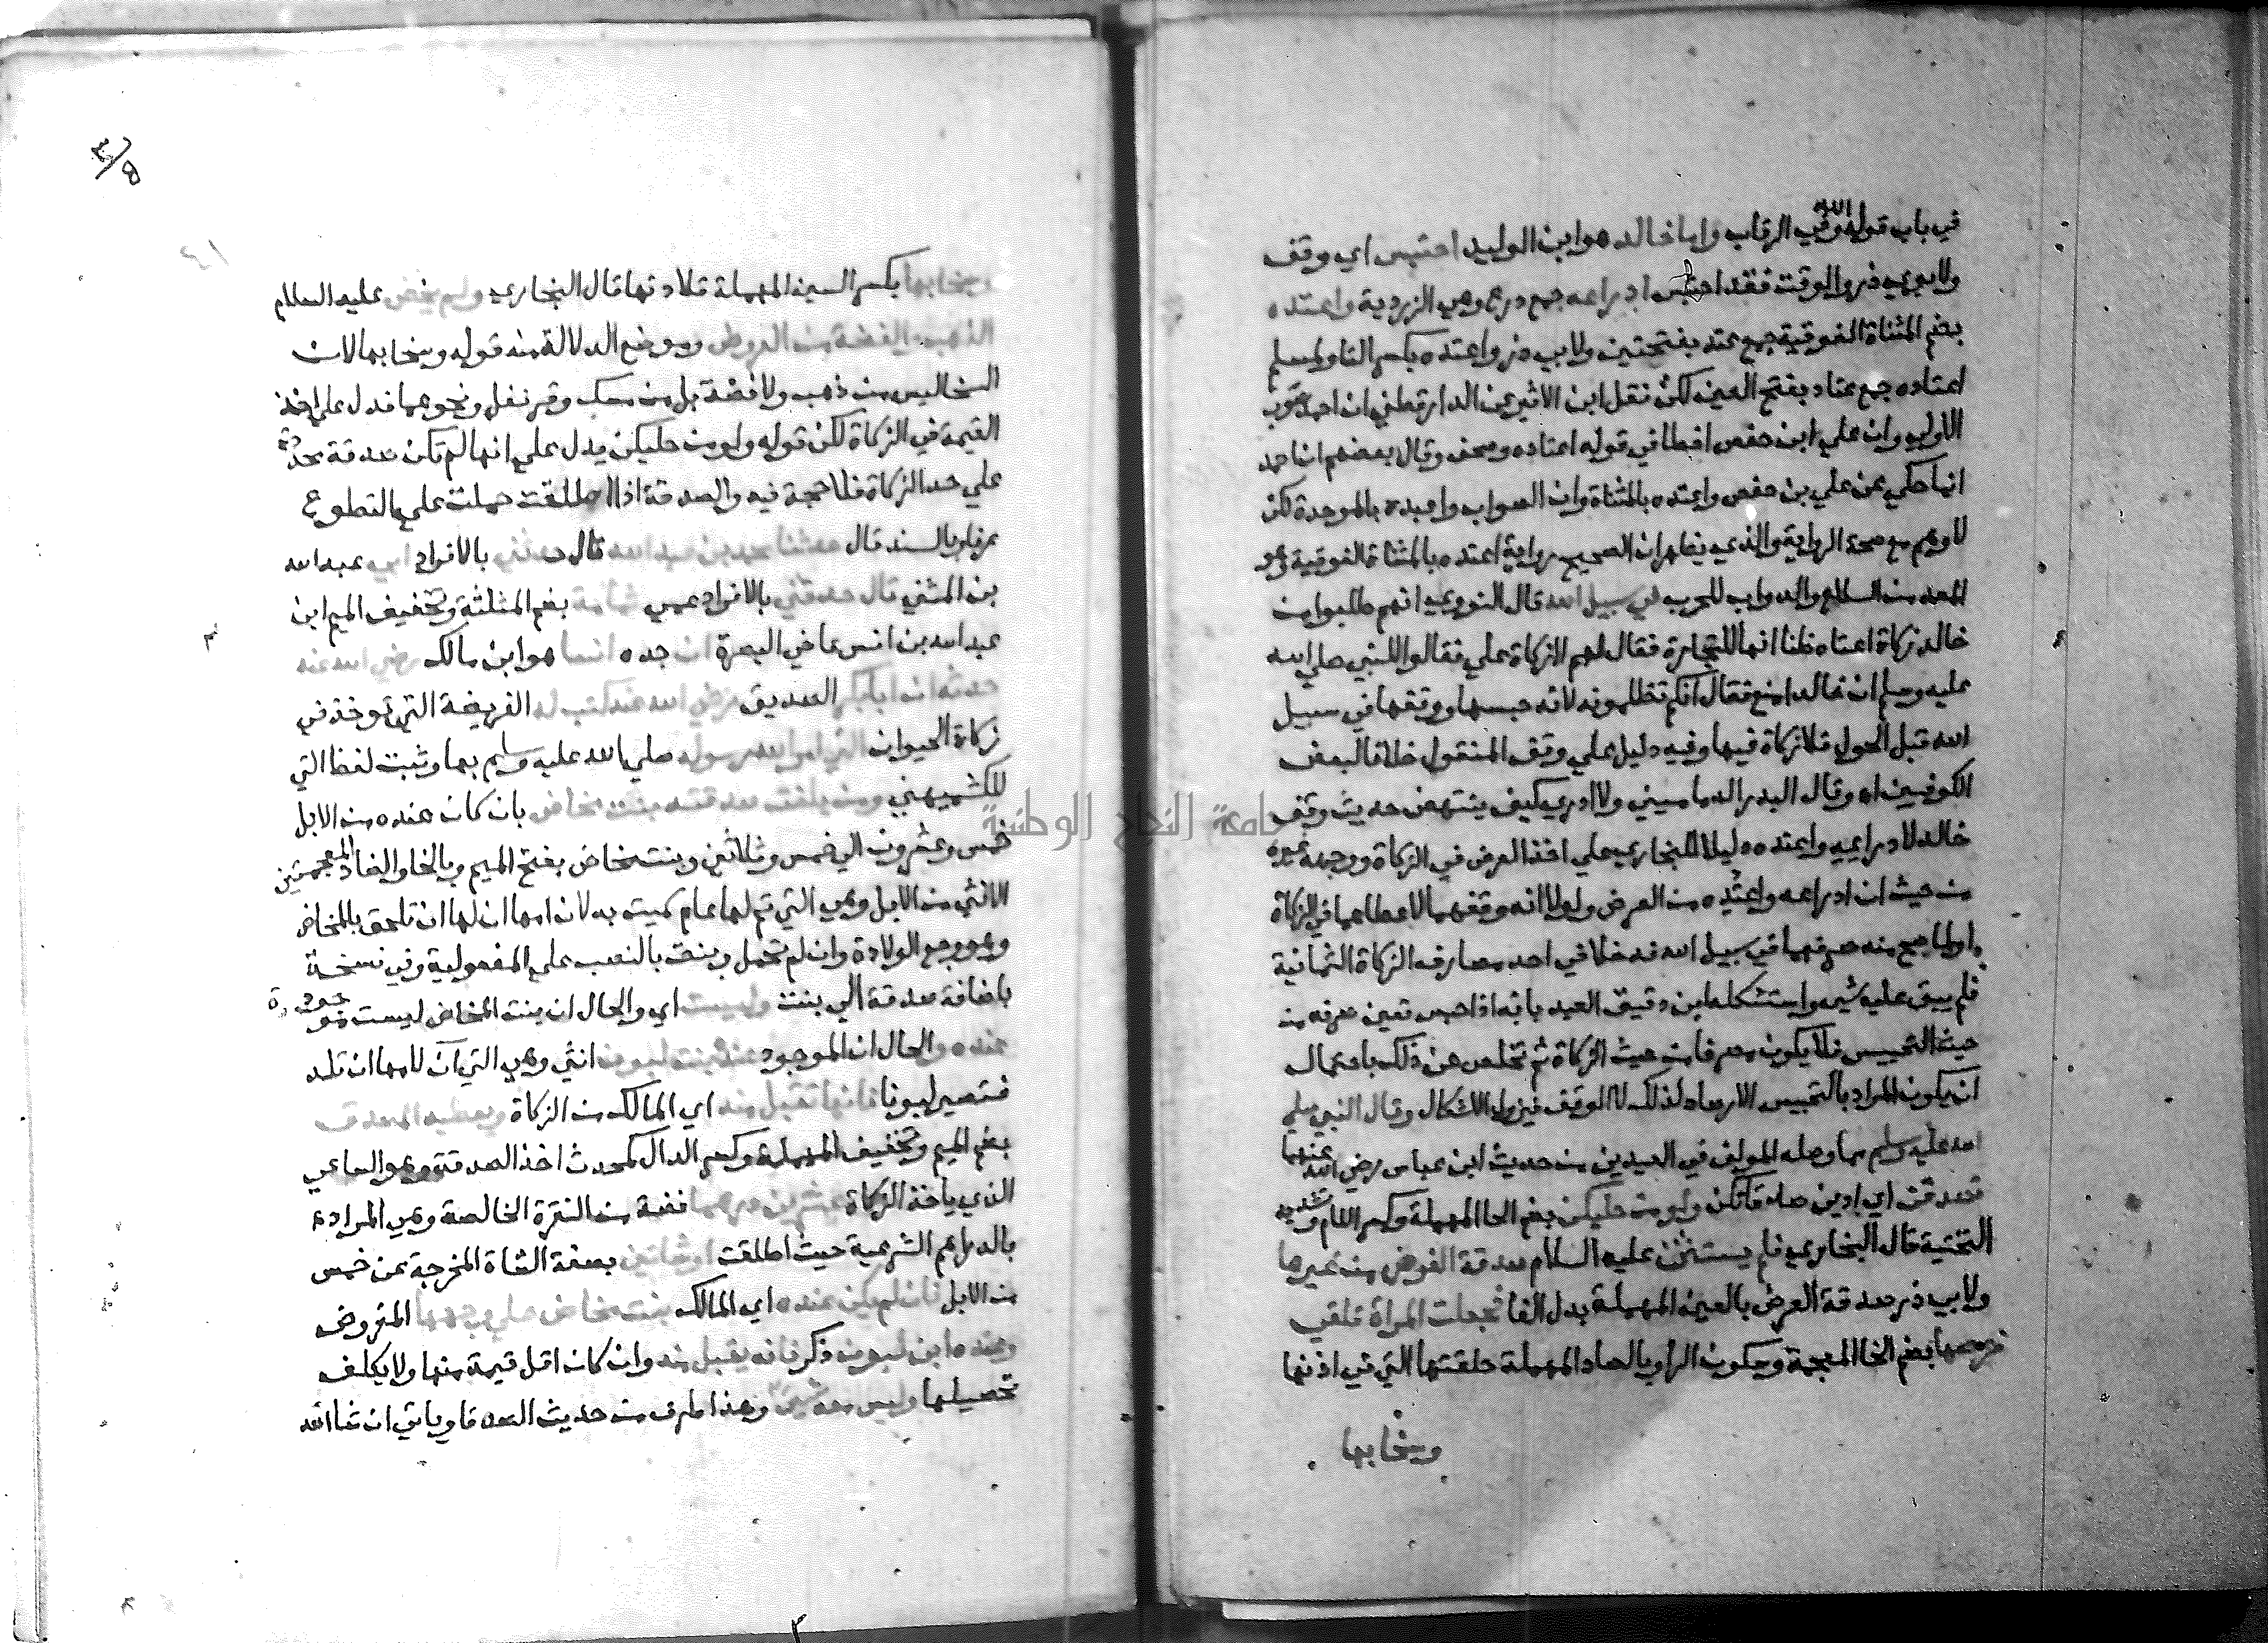 في باب قوله الله وفي الرقاب واما خالد هو ابن الوليد احتبس اي وقف
ولابوي ذر والوقت فقد احتبس ادراعه جمع درع وهي الزردية واعتده
بضم المثناة الفوقية جمع عتد بفتحتين ولابي ذر واعتده بكسر التا ولمسلم
اعتاده جمع عتاد بفتح العين لكن نقل ابن الاثير عن الدارقطني ان احمد صوب
الاولي وان علي ابن حفص اخطا في قوله اعتاده وصحف وقال بعضهم ان احمد
انما حكي عن علي بن حفص واعتده بالمثناة وان الصواب واعبده بالموحدة لكن
لا وهم مع صحة الرواية والذي يظهر ان الصحيح رواية اعتده بالمثناة الفوقية وهو
المعد من السلاح والدواب للحرب في سبيل الله قال النووي انهم طلبوا من
خالد زكاة اعتاده ظنا انها للتجارة فقال لهم لا زكاة علي فقالوا للنبي صلي الله
عليه وسلم ان خالدا منع فقال انكم تظلمونه لانه حبسها ووقفها في سبيل
الله قبل الحول فلا زكاة فيها وفيه دليل علي وقف المنقول خلافا لبعض
الكوفيين اه وقال البدر الدماميني ولا ادري كيف ينتهض حديث وقف
خالد لادراعه واعتده دليلا للبخاري علي اخذ العرض في الزكاة ووجهه غيره
من حيث ان ادراعه واعتده من العرض ولولا انه وقفهما لاعطاهما في الزكاة
او لما صح منه صرفهما في سبيل الله فدخلا في احد مصارف الزكاة الثمانية
فلم يبق عليه شيء واستشكله ابن دقيق العيد بانه اذا حبس تعين صرفه من
حيث التحبيس فلا يكون صرفا من حيث الزكاة ثم تخلص عن ذلك باحتمال
ان يكون المراد بالتحبيس الارصاد لذلك لا الوقف فيزول الاشكال وقال النبي صلي
الله عليه وسلم مما وصله المولف في العيدين من حديث ابن عباس رضي الله عنهما
تصدقن اي ادين صدقاتكن ولو من حليكن بضم الحا المهملة وكسر اللام وتشديد
التحتية قال البخاري فلم يستثن عليه السلام صدقة الفرض من غيرها
ولابي ذر صدقة العرض بالعين المهملة بدل الفا فجعلت المراة تلقي
خرصها بضم الخا المعجمة وسكون الرا وبالصاد المهملة حلقتها التي في اذنها
وسخابها
وسخابها بكسر السين المهملة قلادتها قال البخاري ولم يخص عليه السلام
الذهب والفضة من العروض وموضع الدلالة منه قوله وسخابها لان
السخاب ليس من ذهب ولا فضة بل من مسك وقرنفل ونحوهما فدل علي اخذ
القيمة في الزكاة لكن قوله ولو من حليكن يدل علي انها لم تكن صدقة محدودة
علي حد الزكاة فلا حجة فيه والصدقة اذا اطلقت حملت علي التطوع
عرفا وبالسند قال حدثنا محمد بن عبد الله قال حدثني بالافراد ابي عبد الله
بن المثني قال حدثني بالافراد عمي ثمامة بضم المثلثة وتخفيف الميم ابن
عبد الله بن انس قاضي البصرة ان جده انسا هو ابن مالك رضي الله عنه
حدثه ان ابا بكر الصديق رضي الله عنه كتب له الفريضة التي توخذ في
زكاة الحيوان التي امر الله رسوله صلي الله عليه وسلم بها وثبت لفظ التي
للكشميهني ومن بلغت صدقته بنت مخاض بان كان عنده من الابل
خمس وعشرون الي خمس وثلاثين وبنت مخاض بفتح الميم وبالخا والضاد المعجمتين
الانثي من الابل وهي التي تم لها عام سميت به لان امها ان لها ان تلحق بالمخاض
وهو وجع الولادة وان لم تحمل وبنت بالنصب علي المفعولية وفي نسخة
باضافة صدقة الي بنت وليست اي والحال ان بنت المخاض ليست موجودة
عنده والحال ان الموجود عنده بنت لبون انثي وهي التي آن لامها ان تلد
فتصير لبونا فانها تقبل منه اي المالك من الزكاة ويعطيه المصدق
بضم الميم وتخفيف المهملة وكسر الدال كمحدث اخذ الصدقة وهو الساعي
الذي ياخذ الزكاة عشرين درهما فضة من النقرة الخالصة وهي المراد
بالدراهم الشرعية حيث اطلقت او شاتين بصفة الشاة المخرجة عن خمس
من الابل فان لم يكن عنده اي المالك بنت مخاض علي وجهها المفروض
وعنده ابن لبون ذكر فانه يقبل منه وان كان اقل قيمة منها ولا يكلف
تحصيلها وليس معه شيء وهذا طرف من حديث الصدقات وياتي ان شا الله
جامعة النجاح الوطنية